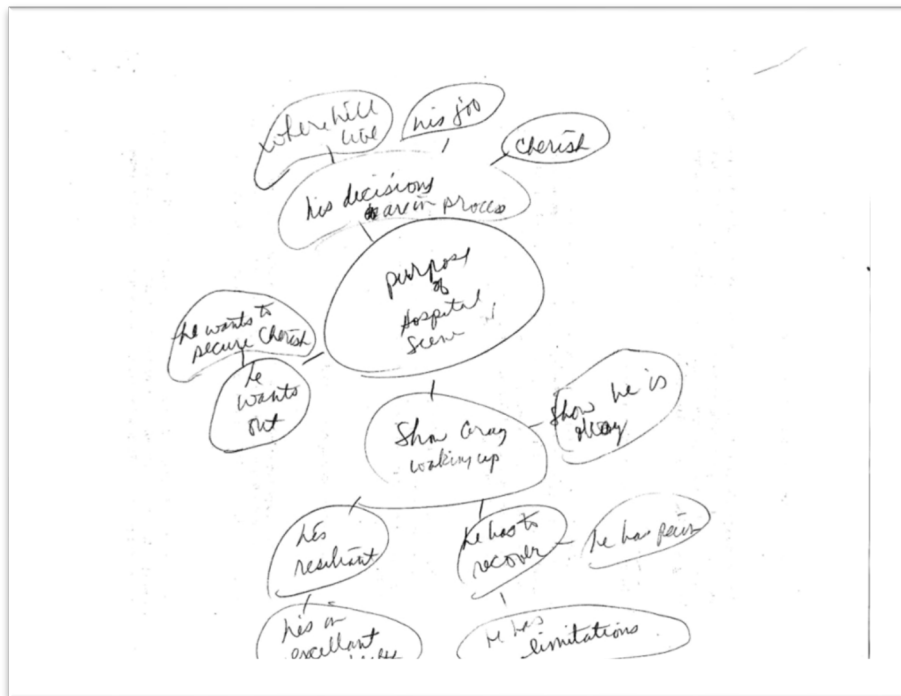 where he'll
live
his job
Cherish
his decisions
are in process
purpose
of
Hospital
Scene
he wants to
secure Cherish
he
wants
out
Show Gray
waking up
Show he is
okay
he's
resiliant
he has to
recover
he has pain
he's in
excellant
he has
limitations